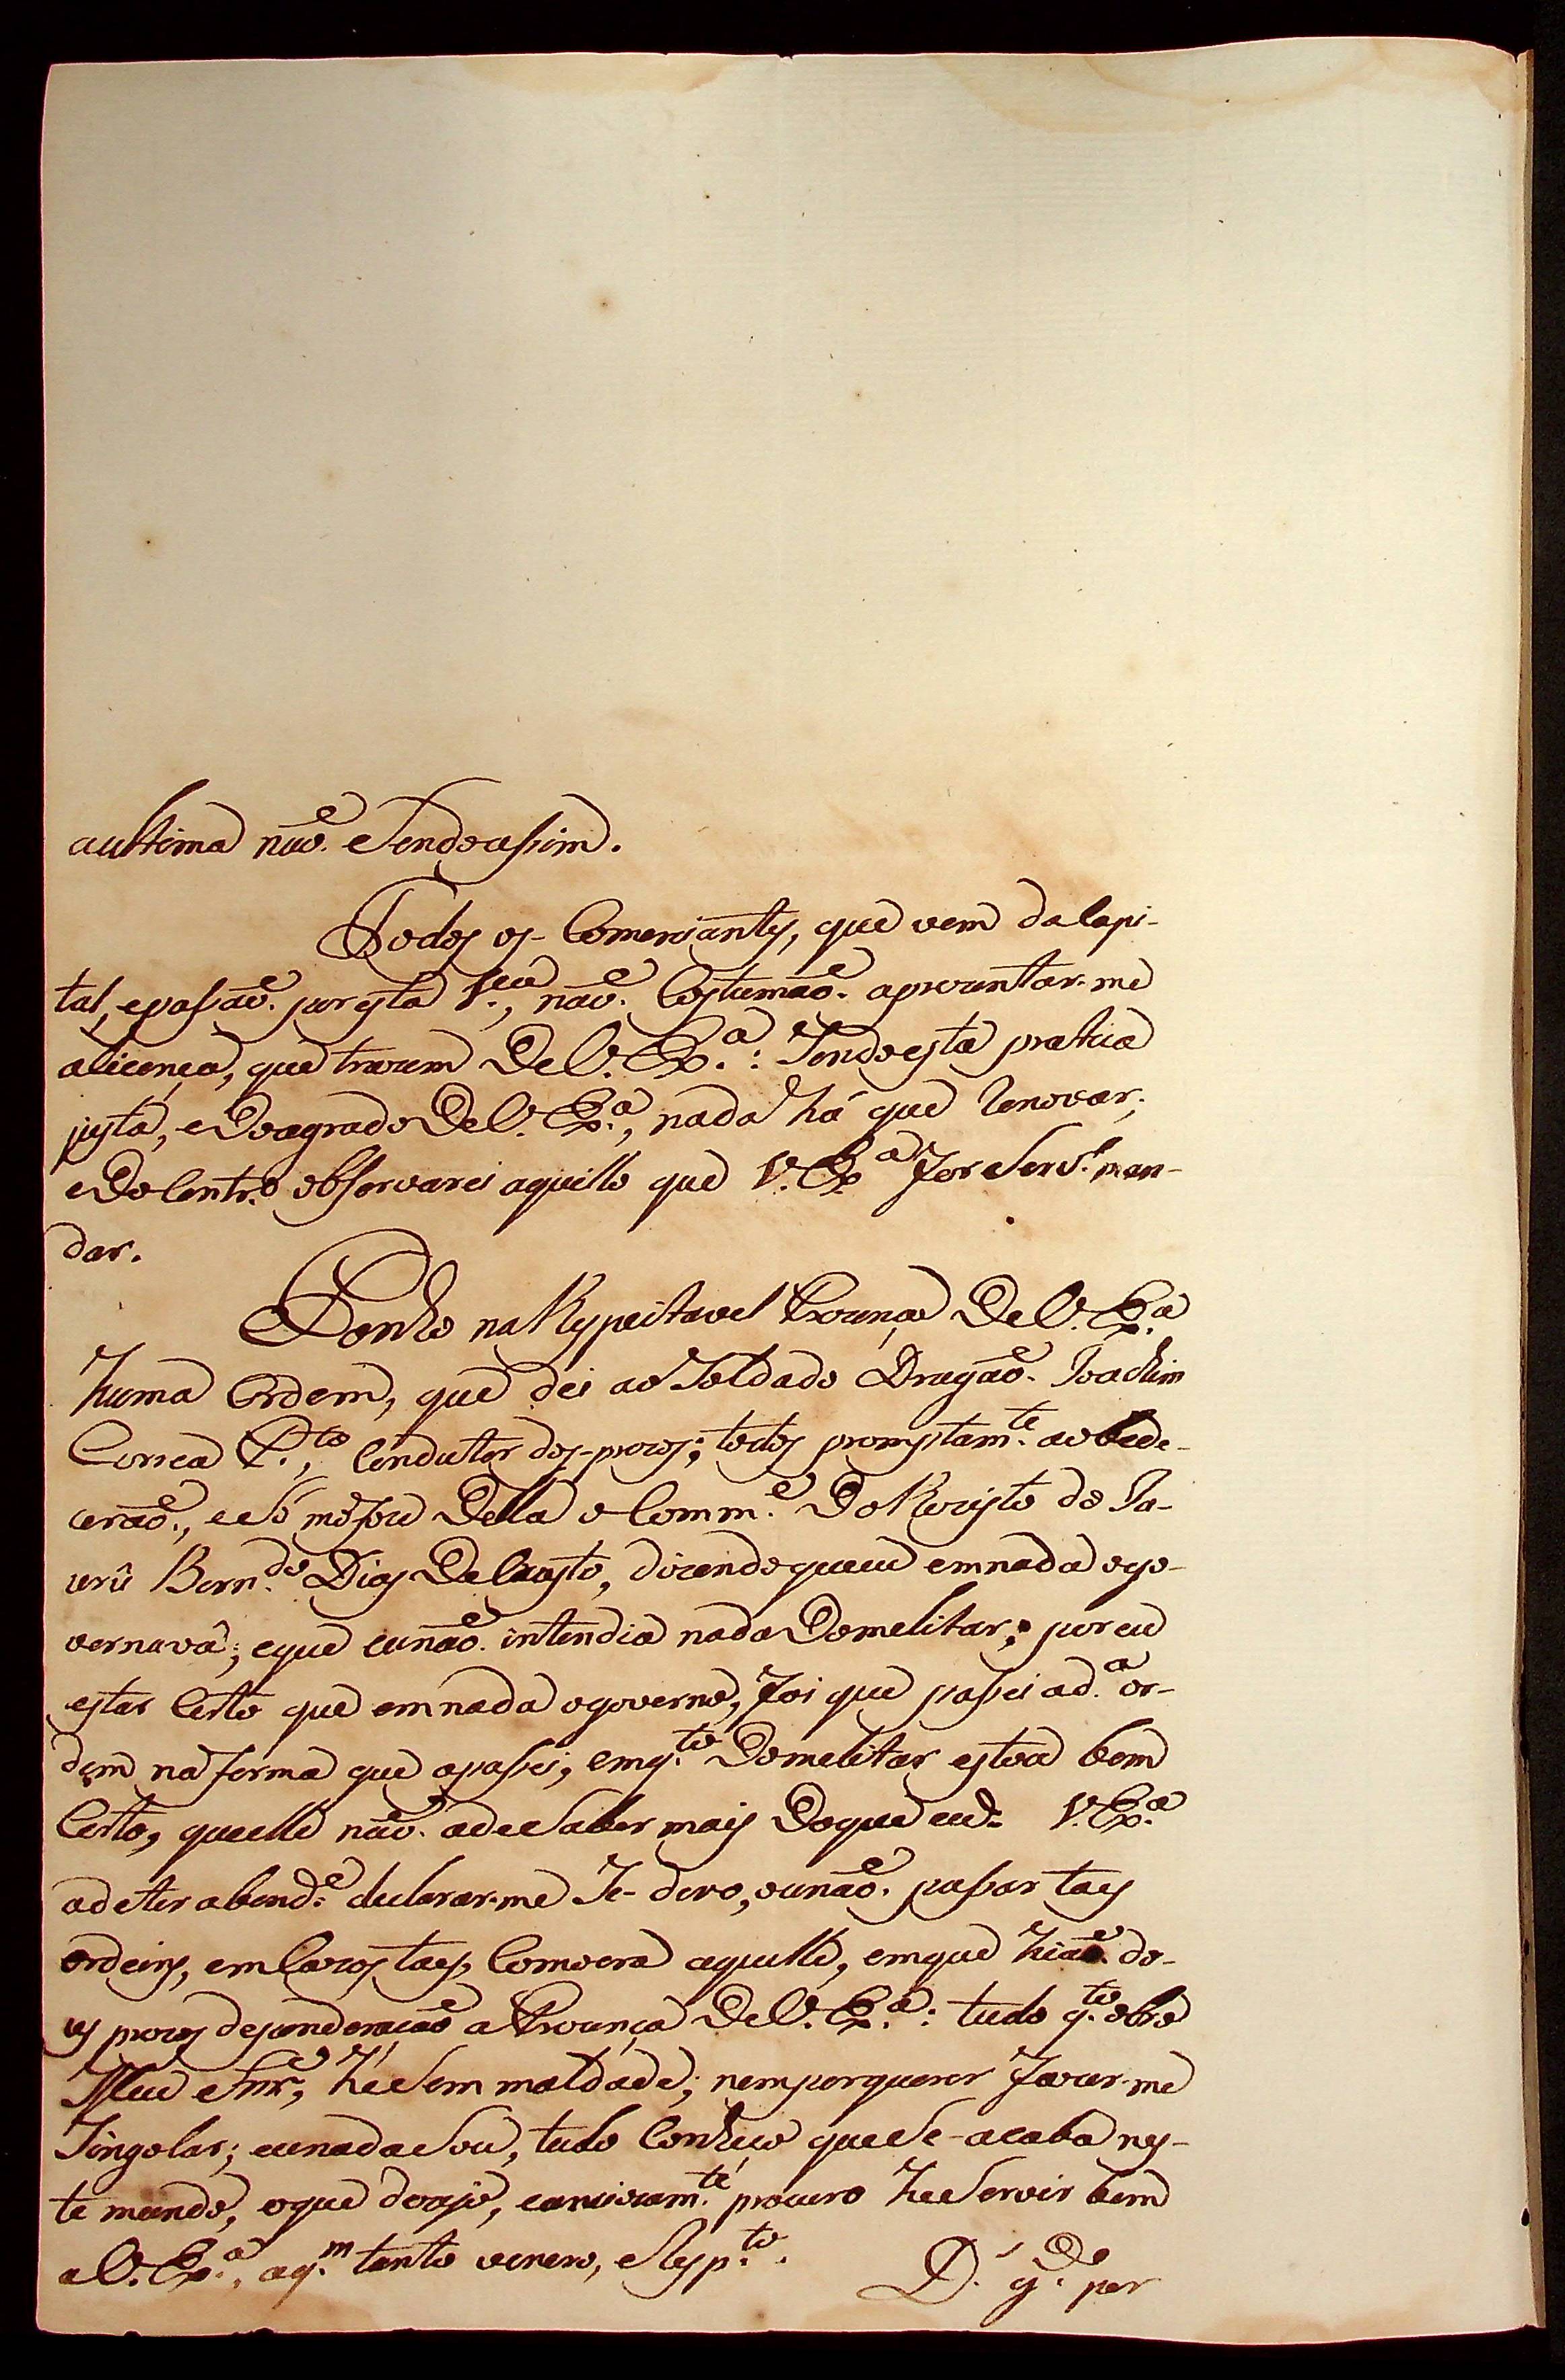 aultima naõ. Sendo assim.
Todos os Comerciantes, que vem da Capi-
tal, epassaõ. por esta V.ª, naõ. Costumaõ. aprezentar-me
alicença, que trazem De V. Ex.ª: Sendo esta pratica
justa, e Do agrado De V. Ex.ª, nada há que Renovar;
e Do Contr.º observarei aquillo que V. Ex.ª for Serv.º man-
dar.
Ponho na Respeitavel Prezença De V. Ex.ª
huma Ordem, que dei ao Soldado Dragaõ. Joachim
Correa P.to, Condutor dos prezos; todos promptam.te aobede-
ceraõ., e Só mófou Della o Comm.e Do Rezisto do Ja-
urû Bern.do Dias De Crasto, dizendo queeu emnada ogo-
vernava; eque eunaõ. intendia nada Domelitar; por eu
estar Certo que emnada ogoverno, foi que passei ad.ª or-
dem na forma que apassei, emq.to Domelitar estou bem
Certo, queelle naõ. ade Saber mais Doque eu. V. Ex.ª
adeter abond.e declarar-me Se devo, ounaõ. passar tais
ordeins, em Cazos tais, Como era aquelle, emque hiaõ. do-
us prezos a Prezença De V. Ex.ª: tudo q.to obro
Meu Snr.e, hé Sem maldade; nemporquerer fazer-me
Singolar; eunada Sou, tudo Conheço que Se acaba nes-
te mundo, oque dezejo, eanciozam.te procuro he Servir bem
a V. Ex.ª, aq.m tanto venero, e Resp.to.
D.s g.de per